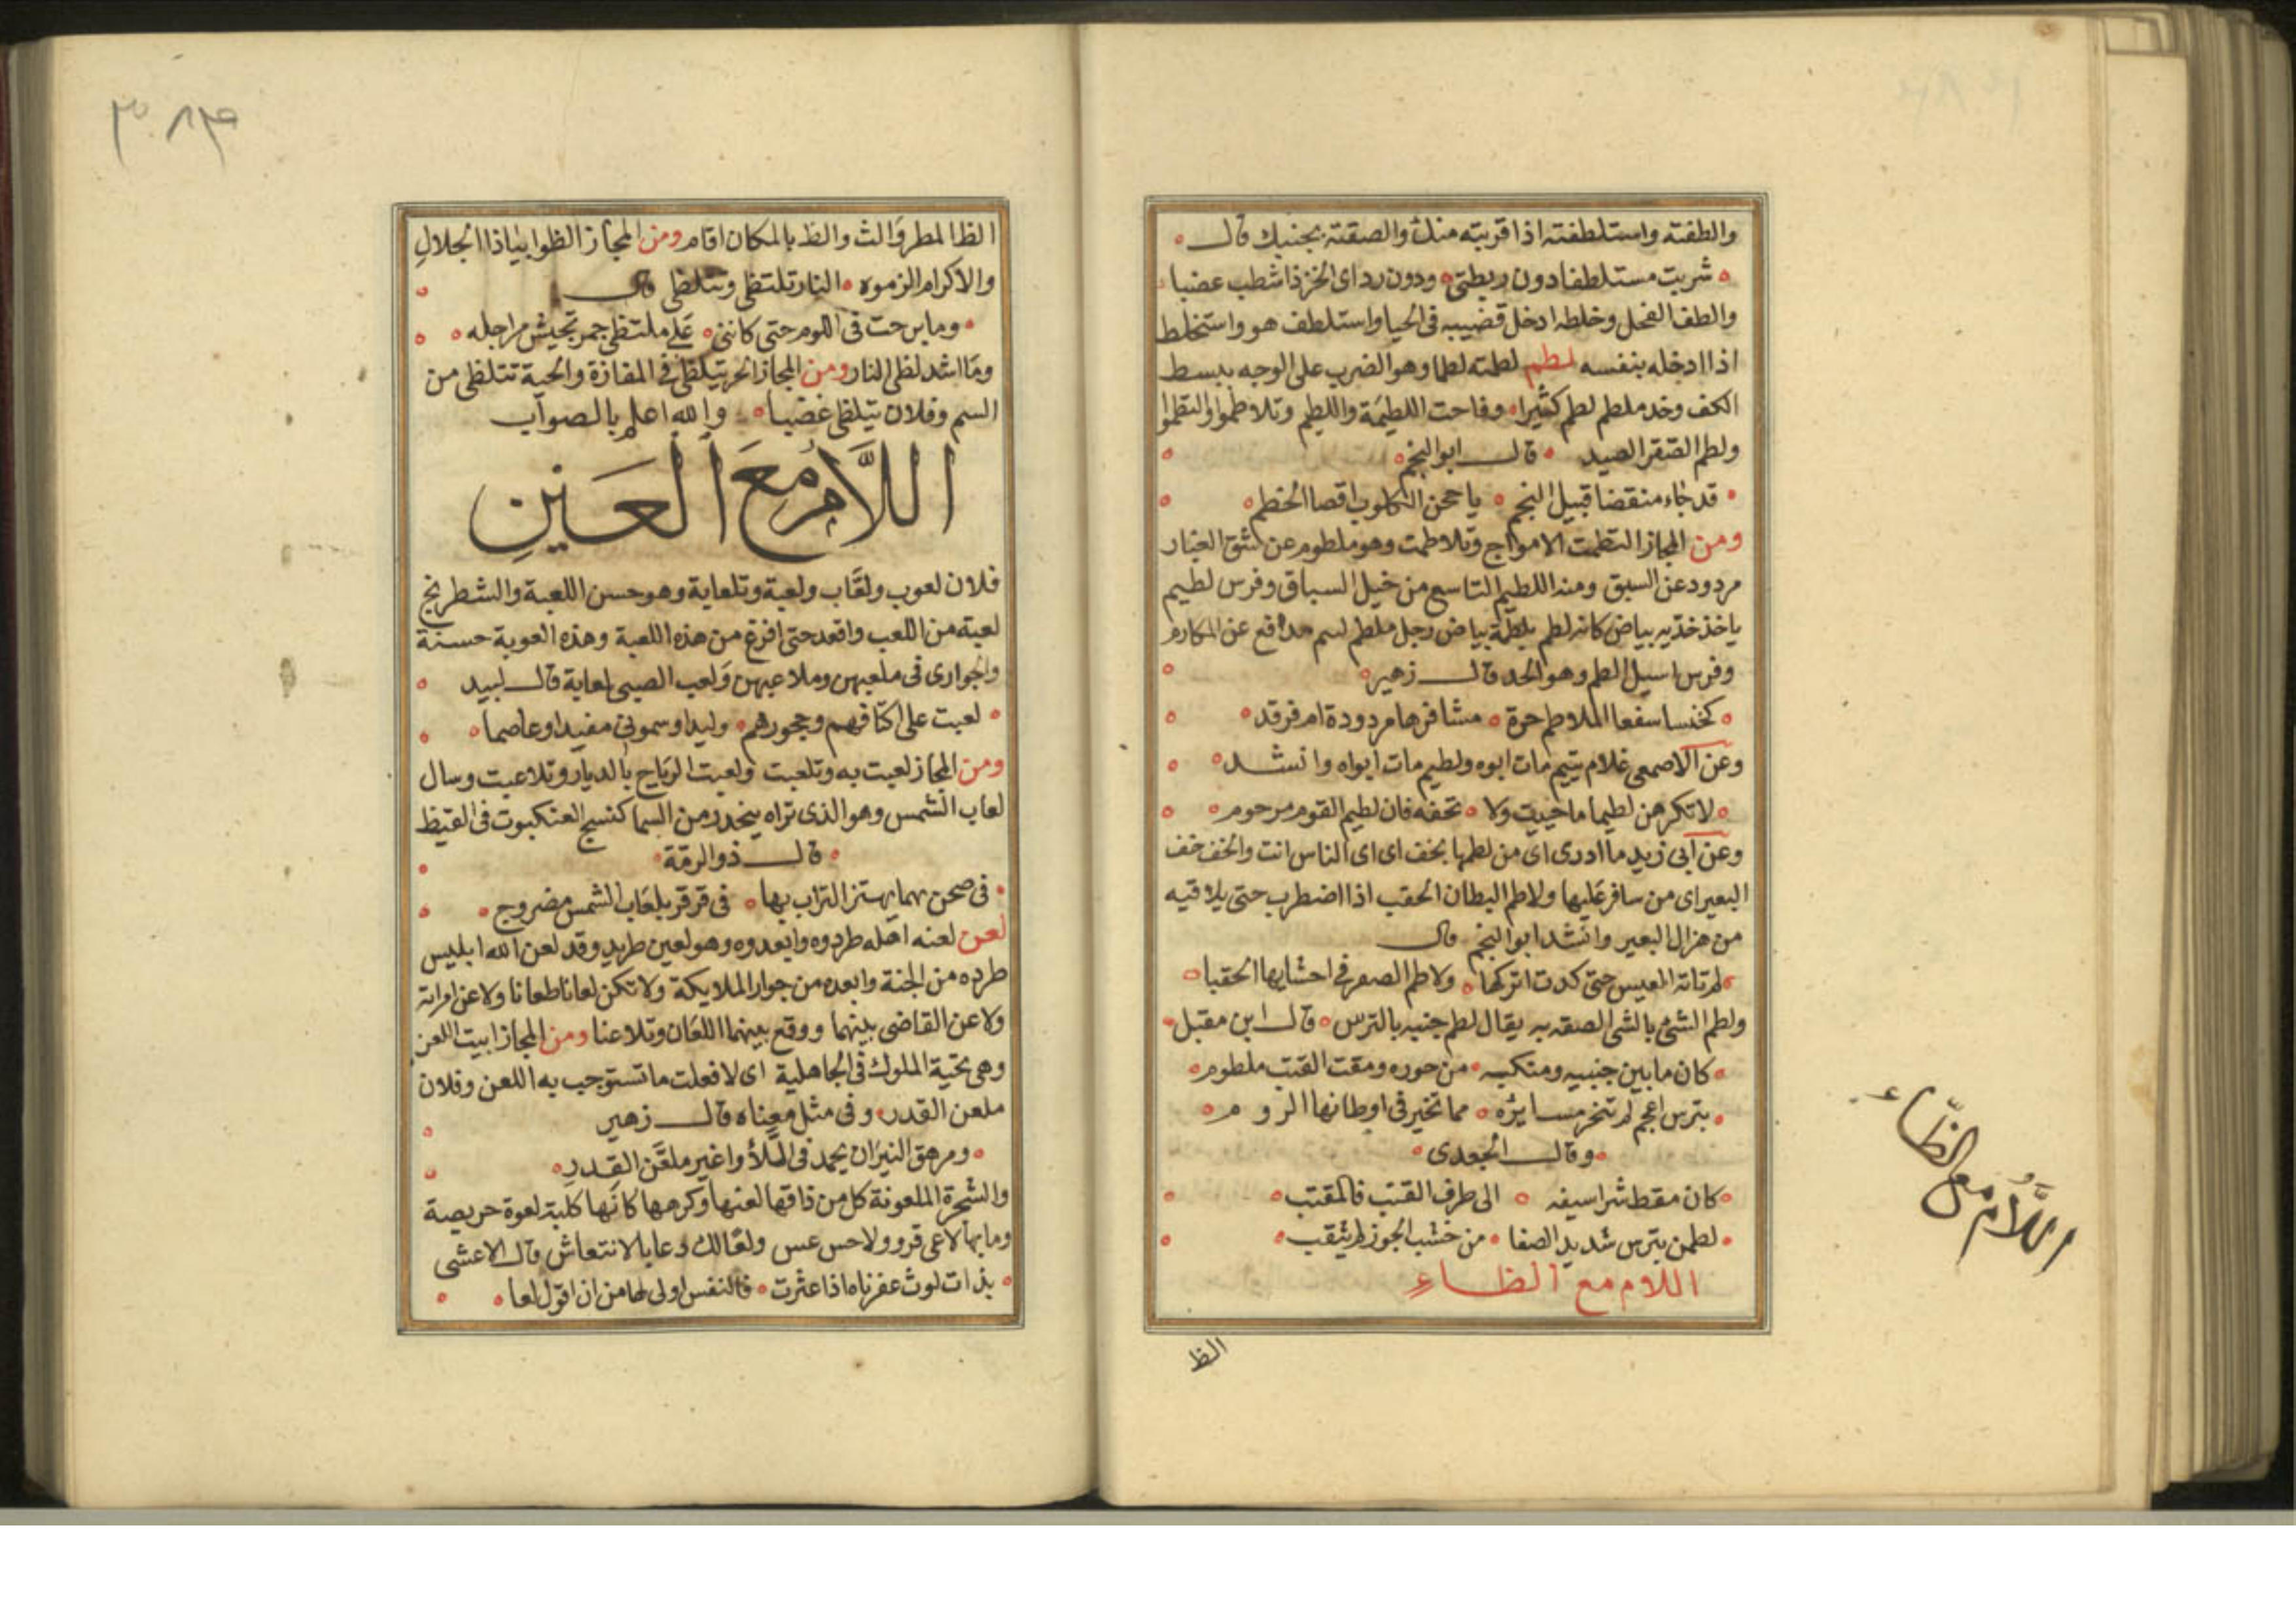 والطفته واستلطفته اذا قربته منك والصقته بجنبك قال
شربت مستلطفا دون ريطتى ودون رداى الخز ذا شطب عضبا
والطف الفحل وخلطه ادخل قضيبه فى الحيا واستلطف هو واستخلط
اذا ادخله بنفسه لطم لطمته لطما وهو الضرب على الوجه ببسط
الكف وخد ملطم لطم كثيرا وفاحت اللطيمة واللطيم وتلاطموا والتطموا
ولطم الصقر الصيد قال ابو النجم
قد جاء منقضا قبيل النجم يا حجن الكلوب اقصا الخطم
ومن المجاز التطمت الامواج وتلاطمت وهو ملطوم عن شق الغبار
مردود عن السبق ومنه اللطيم التاسع من خيل السباق وفرس لطيم
ياخذ خديه بياض كانه لطم بلطمة بياض رجل ملطم لسم مدافع عن المكارم
وفرس اسيل الطم وهو الخد قال زهير
كخنسا سفعا الملاطم حرة مشافرها مردودة ام فرقد
وعن الاصمعى غلام يتيم مات ابوه ولطيم مات ابواه وانشد
لا تكرهن لطيما ما حييت ولا تحفه فان لطيم القوم مرحوم
وعن ابى زيد ما ادرى اى من لطمها بخف اى اى الناس انت والخف خف
البعير اى من سافر عليها ولاطم البطان الحقب اذا اضطرب حتى يلاقيه
من هزال البعير وانشد ابو النجم قال
لم تاته العيس حتى كدت اتركها ولاطم الصفر فى احشايها الحقبا
ولطم الشئ بالشى الصقه به يقال لطم جنبه بالترس قال ابن مقبل
كان ما بين جنبيه ومنكبه من حوره ومقت القتب ملطوم
بترس اعجم لم تنخر مسايره مما تخير فى اوطانها الروم
وقال الجعدى
كان مقط شراسيفه الى طرف القنب فالمقتب
لطمن بترس شديد الصفا من خشب الجوز لم يثقب
اللام مع الظاء
الظ
اللَّامُ مع الظّاء
٣٠٨٤
الظ المطر والث والظ بالمكان اقام ومن المجاز الظوا بياذا الجلال
والاكرام الزموه النار تلتظى وتتلظى قال
وما برحت فى اللوم حتى كاننى على ملتظى جمر تجيش مراجله
وما اشد لظى النار ومن المجاز الحر يتلظى فى المفازة والحية تتلظى من
السم وفلان يتلظى غضبا والله اعلم بالصواب
اللَّامُ مَعَ العَينِ
فلان لعوب ولعّاب ولعبة وتلعابة وهو حسن اللعبة والشطرنج
لعبة من اللعب واقعد حتى افرغ من هذه اللعبة وهذه العوبة حسنة
والجوارى فى ملعبهن وملاعبهن ولعب الصبى لعابة قال لبيد
لعبت على اكتافهم وحجورهم وليدا وسمونى مفيدا وعاصما
ومن المجاز لعبت به وتلعبت ولعبت الرياح بالديار وتلاعبت وسال
لعاب الشمس وهو الذى تراه ينحدر من السما كنسج العنكبوت فى القيظ
قال ذو الرمة
فى صحن يهما يهتز التراب بها فى قرقر بلعاب الشمس مضروج
لعن لعنه اهله طردوه وابعدوه وهو لعين طريد وقد لعن الله ابليس
طرده من الجنة وابعده من جوار الملايكة ولا تكن لعانا طعانا ولاعن امراته
ولاعن القاضى بينهما ووقع بينهما اللعان وتلاعنا ومن المجاز ابيت اللعن
وهى تحية الملوك فى الجاهلية اى لا فعلت ما تستوجب به اللعن وفلان
ملعن القدر وفى مثل معناه قال زهير
ومرهق النيران يحمد فى اللأوا غير ملعّن القدر
والشجرة الملعونة كل من ذاقها لعنها وكرهها كانها كلبة لعوة حريصة
وما بها لاعى قرو ولا حس عس ولعا لك دعا بالانتعاش قال الاعشى
بذات لوث عفرناه اذا عثرت فالنفس اولى لها من ان اقول لعا